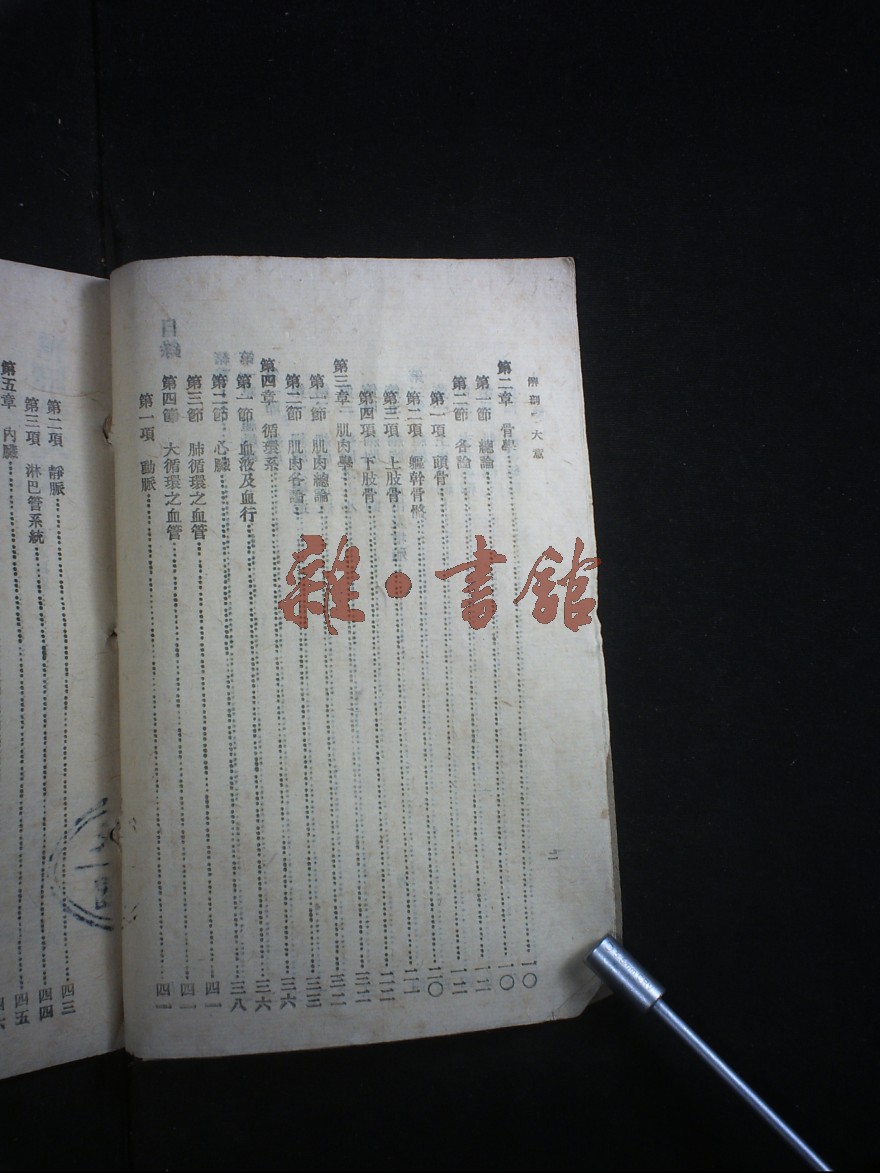 解剖學大意
二
第二章 骨學……一〇
第一節 總論……一〇
第二節 各論……一二
第一項 頭骨……一二
第二項 軀幹骨骼……二〇
第三項 上肢骨……二一
第四項 下肢骨……二二
第三章 肌肉學……三二
第一節 肌肉總論……三二
第二節 肌肉各論……三三
第四章 循環系……三六
第一節 血液及血行……三六
第二節 心臟……三八
第三節 肺循環之血管……四一
第四節 大循環之血管……四一
第一項 動脈……四一
第二項 靜脈……四三
第三項 淋巴管系統……四四
第五章 內臟……四五
雜·書館